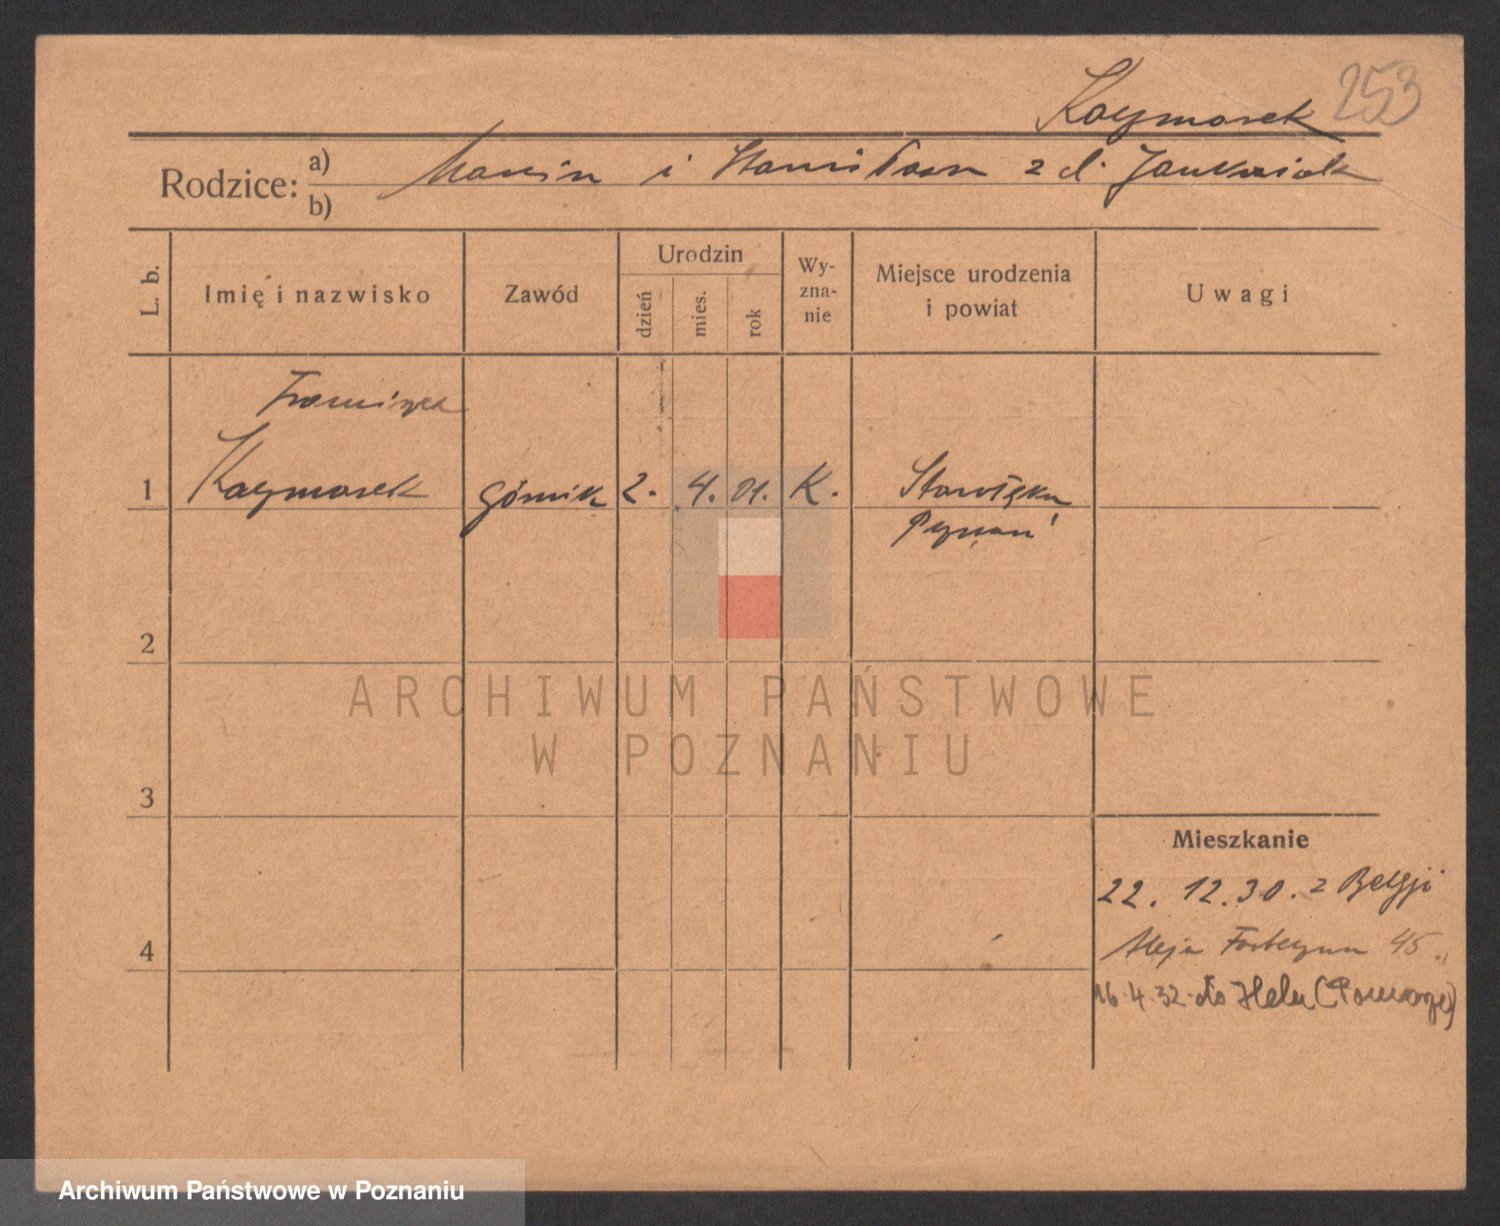 253
Kaczmarek
Rodzice: a) Marcin i Stanisława z d. Jankowiak
b)
L. b.
Imię i nazwisko
Zawód
Urodzin
dzień
mies.
rok
Wy-
zna-
nie
Miejsce urodzenia
i powiat
Uwagi
Franciszek
1 Kaczmarek górnik 2. 4. 01. K.
Poznań
2
ARCHIWUM PAŃSTWOWE
W POZNANIU
3
Mieszkanie
22. 12. 30. z Belgji
4
Aleja 45.
16.4.32 do Helu (Pomorze)
Archiwum Państwowe w Poznaniu